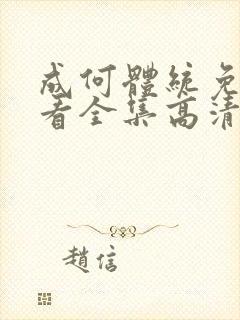 成何體統免
看全集高清
趙信